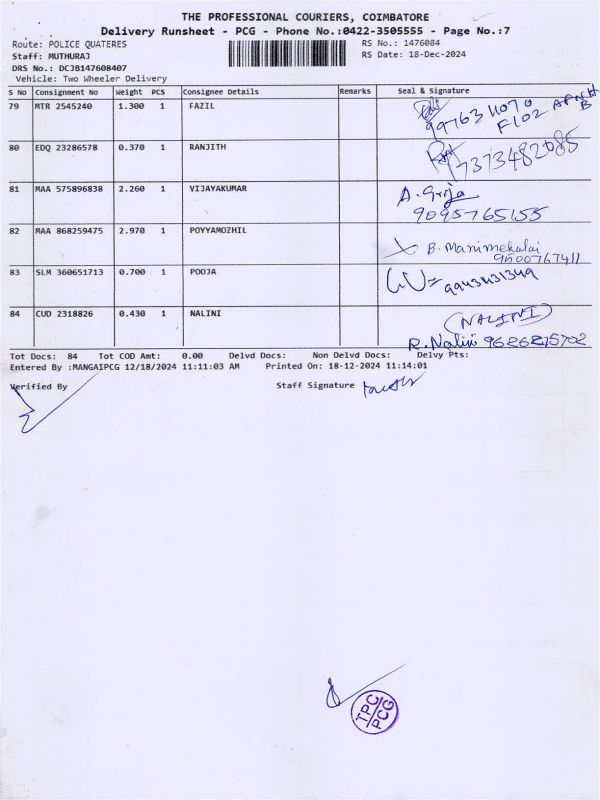 THE PROFESSIONAL COURIERS, COIMBATORE
Delivery Runsheet - PCG - Phone No.:0422-3505555 - Page No.:7
Route: POLICE QUATERES RS No.: 1476084
Staff: MUTHURAJ RS Date: 18-Dec-2024
DRS No.: DCJB147608407
Vehicle: Two Wheeler Delivery
S No Consignment No Weight PCS Consignee Details Remarks Seal & Signature
79 MTR 2545240 1.300 1 FAZIL
9976311070
F102
B
80 EDQ 23286578 0.370 1 RANJITH
7373482085
81 MAA 575896838 2.260 1 VIJAYAKUMAR A. Grija
9095765155
82 MAA 868259475 2.970 1 POYYAMOZHIL
B. Manimekalai
9500767411
83 SLM 360651713 0.700 1 POOJA
84 CUD 2318826 0.430 1 NALINI (NALINI)
R. Nalini
Tot Docs: 84 Tot COD Amt: 0.00 Delvd Docs: Non Delvd Docs: Delvy Pts:
Entered By :MANGAIPCG 12/18/2024 11:11:03 AM Printed On: 18-12-2024 11:14:01
Verified By Staff Signature
TPC
PCG